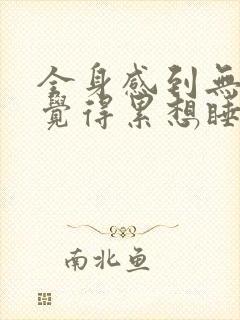 全身感到無
覺得累想睡
南北鱼